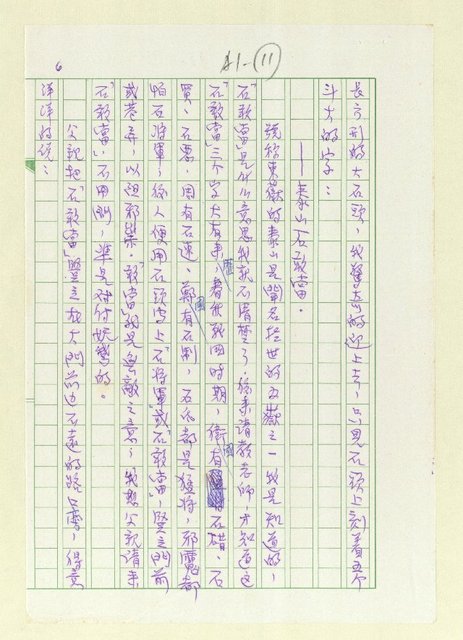 A1-(11)
6
長方形的大石頭，我驚奇的迎上去，只見石頭上刻着五个
斗大的字：
──泰山石敢當。
號称東嶽的泰山是聞名於世的五嶽之一我是知道的，
「石敢當」是什么意思我就不清楚了，後來請教老師，才知道這
「石敢當」三个字大有來歷，春秋戰国時期，衛国有石碏、石
買、石惡，周有石速、鄭国有石制，石氏都是猛將，邪魔都
怕石將軍，後人便用石頭寫上「石將軍」或「石敢當」，豎立門前
或巷弄，以迴邪祟。「敢當」就是無敵之意，我想父親請來
「石敢當」，不用測，準是对付妖鸞的。
父親把「石敢當」豎立在大門前边不遠的路口旁，得意
洋洋的说：